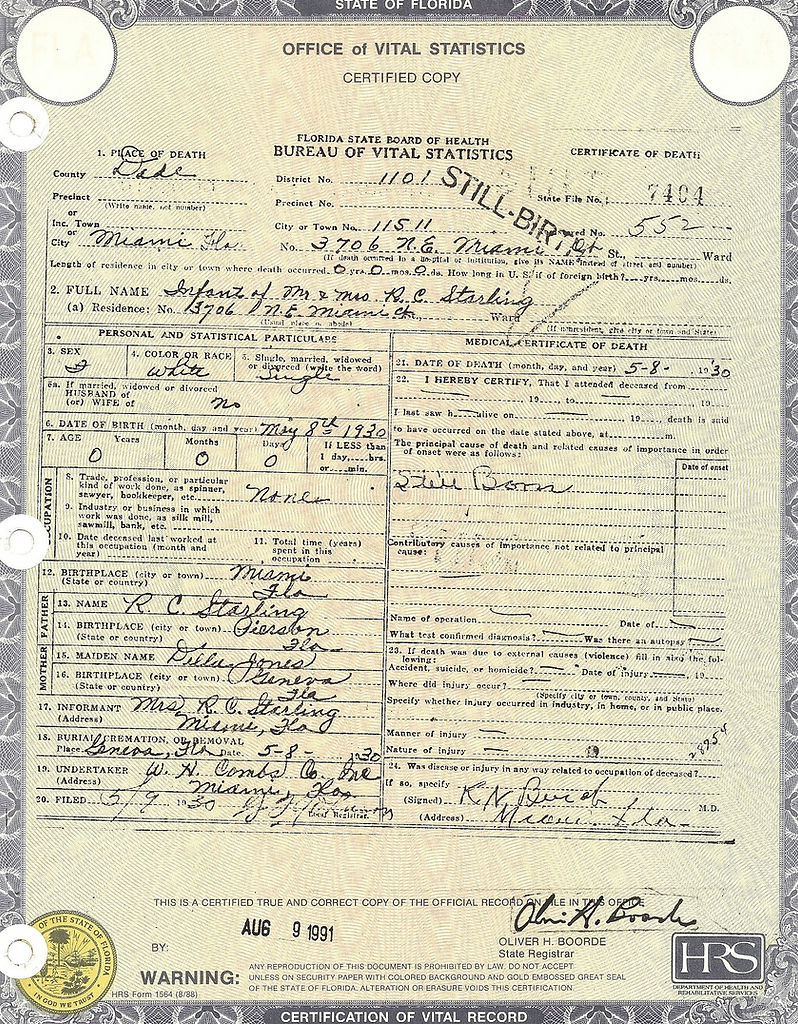 STATE OF FLORIDA
OFFICE of VITAL STATISTICS
CERTIFIED COPY
FLORIDA STATE BOARD OF HEALTH
BUREAU OF VITAL STATISTICS
CERTIFICATE OF DEATH
1. PLACE OF DEATH
County Dade
District No. 1101
STILL-BIRTH
State File No. 7404
Precinct
(Write name, not number)
Precinct No.
552
or
Inc. Town
or
City Miami Fla.
City or Town No. 11511
No. 3706 N.E. Miami Ct St., Ward
(If death occurred in a hospital or institution, give its NAME instead of street and number)
Length of residence in city or town where death occurred 0 yrs. 0 mos. 0 ds. How long in U. S. if of foreign birth? yrs. mos. ds.
2. FULL NAME Infant of Mr & Mrs R. C. Starling
(a) Residence: No. 3706 N.E. Miami Ct. Ward
(Usual place of abode) (If nonresident, give city or town and State)
PERSONAL AND STATISTICAL PARTICULARS
3. SEX F
4. COLOR OR RACE White
5. Single, married, widowed or divorced (write the word) Single
5a. If married, widowed or divorced
HUSBAND of
(or) WIFE of No
6. DATE OF BIRTH (month, day and year) May 8th 1930
7. AGE Years 0 Months 0 Days 0 If LESS than 1 day, hrs. or min.
OCCUPATION
8. Trade, profession, or particular kind of work done, as spinner, sawyer, bookkeeper, etc. None
9. Industry or business in which work was done, as silk mill, sawmill, bank, etc.
10. Date deceased last worked at this occupation (month and year)
11. Total time (years) spent in this occupation
12. BIRTHPLACE (city or town) Miami
(State or country) Fla
FATHER
13. NAME R. C. Starling
14. BIRTHPLACE (city or town) Pierson
(State or country) Fla
MOTHER
15. MAIDEN NAME Della Jones
16. BIRTHPLACE (city or town) Geneva
(State or country) Fla
17. INFORMANT Mrs R. C. Starling
(Address) Miami, Fla
18. BURIAL, CREMATION, OR REMOVAL
Place Geneva, Fla Date 5-8- 1930
19. UNDERTAKER W. H. Combs Co. Inc
(Address) Miami, Fla
20. FILED 5/9 1930
Local Registrar.
MEDICAL CERTIFICATE OF DEATH
21. DATE OF DEATH (month, day, and year) 5-8- 1930
22. I HEREBY CERTIFY, That I attended deceased from
19 to 19
I last saw h alive on 19 , death is said
to have occurred on the date stated above, at m.
The principal cause of death and related causes of importance in order of onset were as follows:
Date of onset
Still Born
Contributory causes of importance not related to principal cause:
Name of operation Date of
What test confirmed diagnosis? Was there an autopsy?
23. If death was due to external causes (violence) fill in also the following:
Accident, suicide, or homicide? Date of injury 19
Where did injury occur?
(Specify city or town, county, and State)
Specify whether injury occurred in industry, in home, or in public place.
Manner of injury
Nature of injury
24. Was disease or injury in any way related to occupation of deceased?
If so, specify
(Signed) M.D.
(Address) Miami Fla
THIS IS A CERTIFIED TRUE AND CORRECT COPY OF THE OFFICIAL RECORD ON FILE IN THIS OFFICE
AUG 9 1991
Oliver H. Boorde
BY:
OLIVER H. BOORDE
State Registrar
WARNING:
ANY REPRODUCTION OF THIS DOCUMENT IS PROHIBITED BY LAW. DO NOT ACCEPT
UNLESS ON SECURITY PAPER WITH COLORED BACKGROUND AND GOLD EMBOSSED GREAT SEAL
OF THE STATE OF FLORIDA. ALTERATION OR ERASURE VOIDS THIS CERTIFICATION.
HRS Form 1564 (8/88)
OF THE STATE OF FLORIDA
IN GOD WE TRUST
HRS
DEPARTMENT OF HEALTH AND
REHABILITATIVE SERVICES
CERTIFICATION OF VITAL RECORD